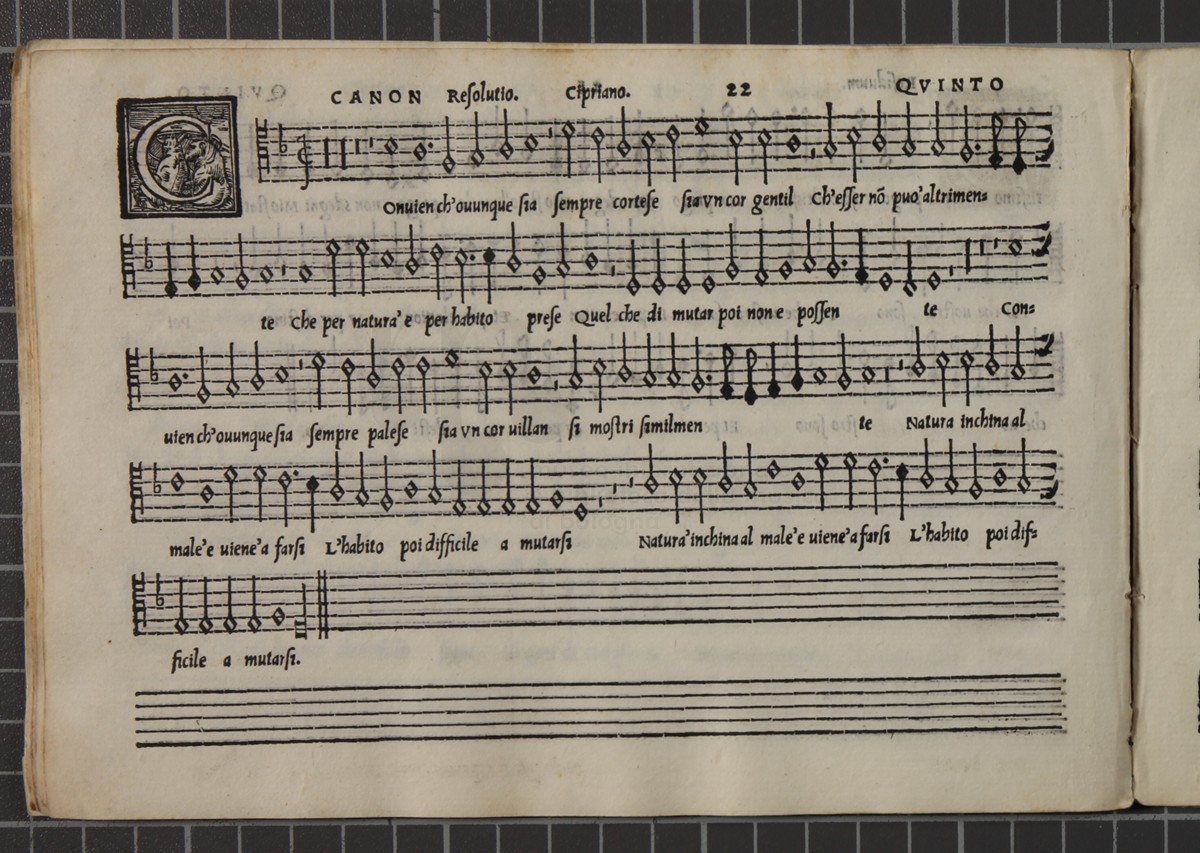 CANON Resolutio. Cipriano. 22 QVINTO
COnuien ch'ouunque sia sempre cortese sia vn cor gentil Ch'esser nō puo'altrimen=
te Che per natura'e per habito prese Quel che di mutar poi non e possen te Con=
uien ch'ouunque sia sempre palese sia vn cor uillan si mostri similmen te Natura inchina al
male'e uiene'a farsi L'habito poi difficile a mutarsi Natura'inchina al male'e uiene'a farsi L'habito poi dif=
ficile a mutarsi.